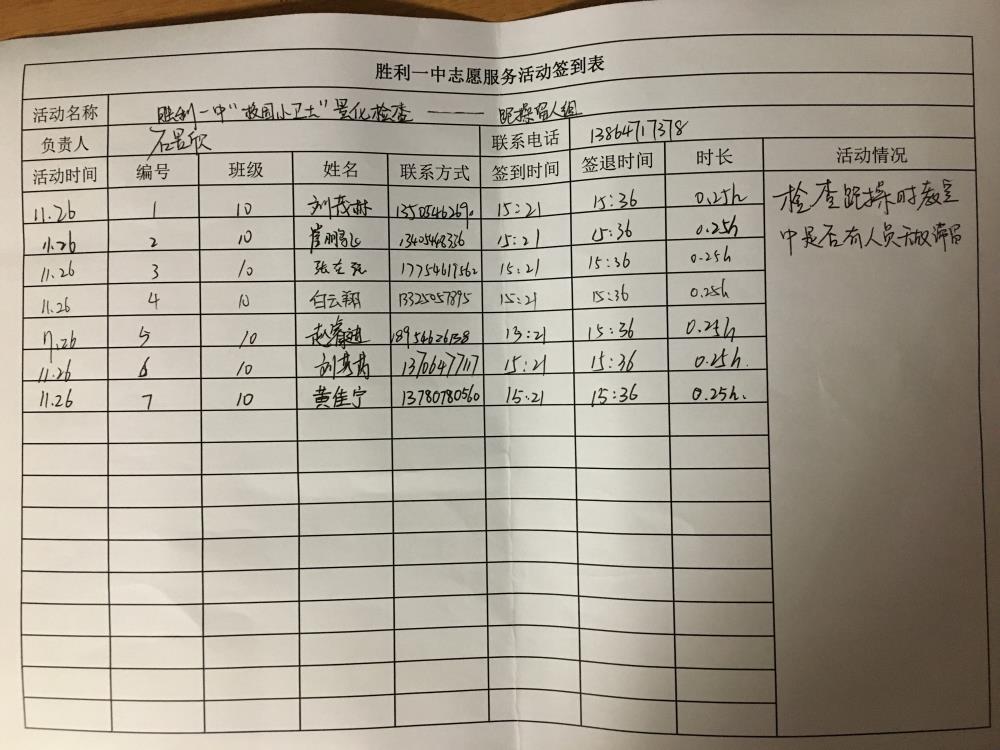 胜利一中志愿服务活动签到表
活动名称 胜利一中"校园小卫士"量化检查 ——— 跑操留人组
负责人 石昱欣 联系电话 13864717378
活动时间 编号 班级 姓名 联系方式 签到时间 签退时间 时长 活动情况
11.26 1 10 刘茂林 15:21 15:36 0.25h 检查跑操时教室
11.26 2 10 崔鹏飞 13405468336 15:21 15:36 0.25h 中是否有人员无故滞留
11.26 3 10 张 17754617562 15:21 15:36 0.25h
11.26 4 10 白云翔 13325057895 15:21 15:36 0.25h
11.26 5 10 赵睿 18954626138 15:21 15:36 0.25h
11.26 6 10 刘其昌 13706477117 15:21 15:36 0.25h.
11.26 7 10 黄佳宁 13780780560 15:21 15:36 0.25h.